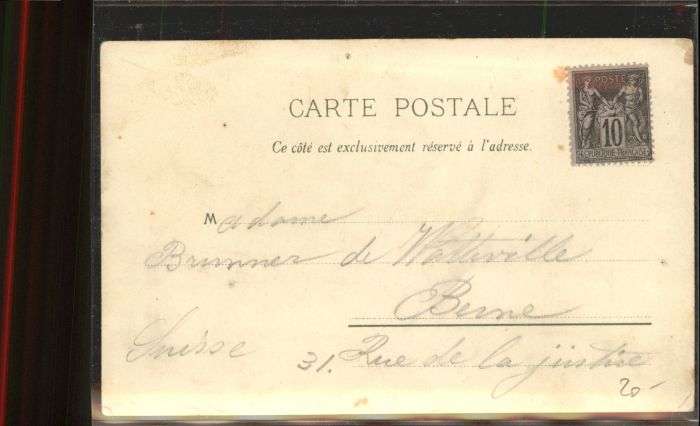 POSTE
10
RÉPUBLIQUE FRANÇAISE
CARTE POSTALE
Ce côté est exclusivement réservé à l'adresse.
Madame
Brunner de Wattville
Berne
Suisse 31. Rue de la justice
20-